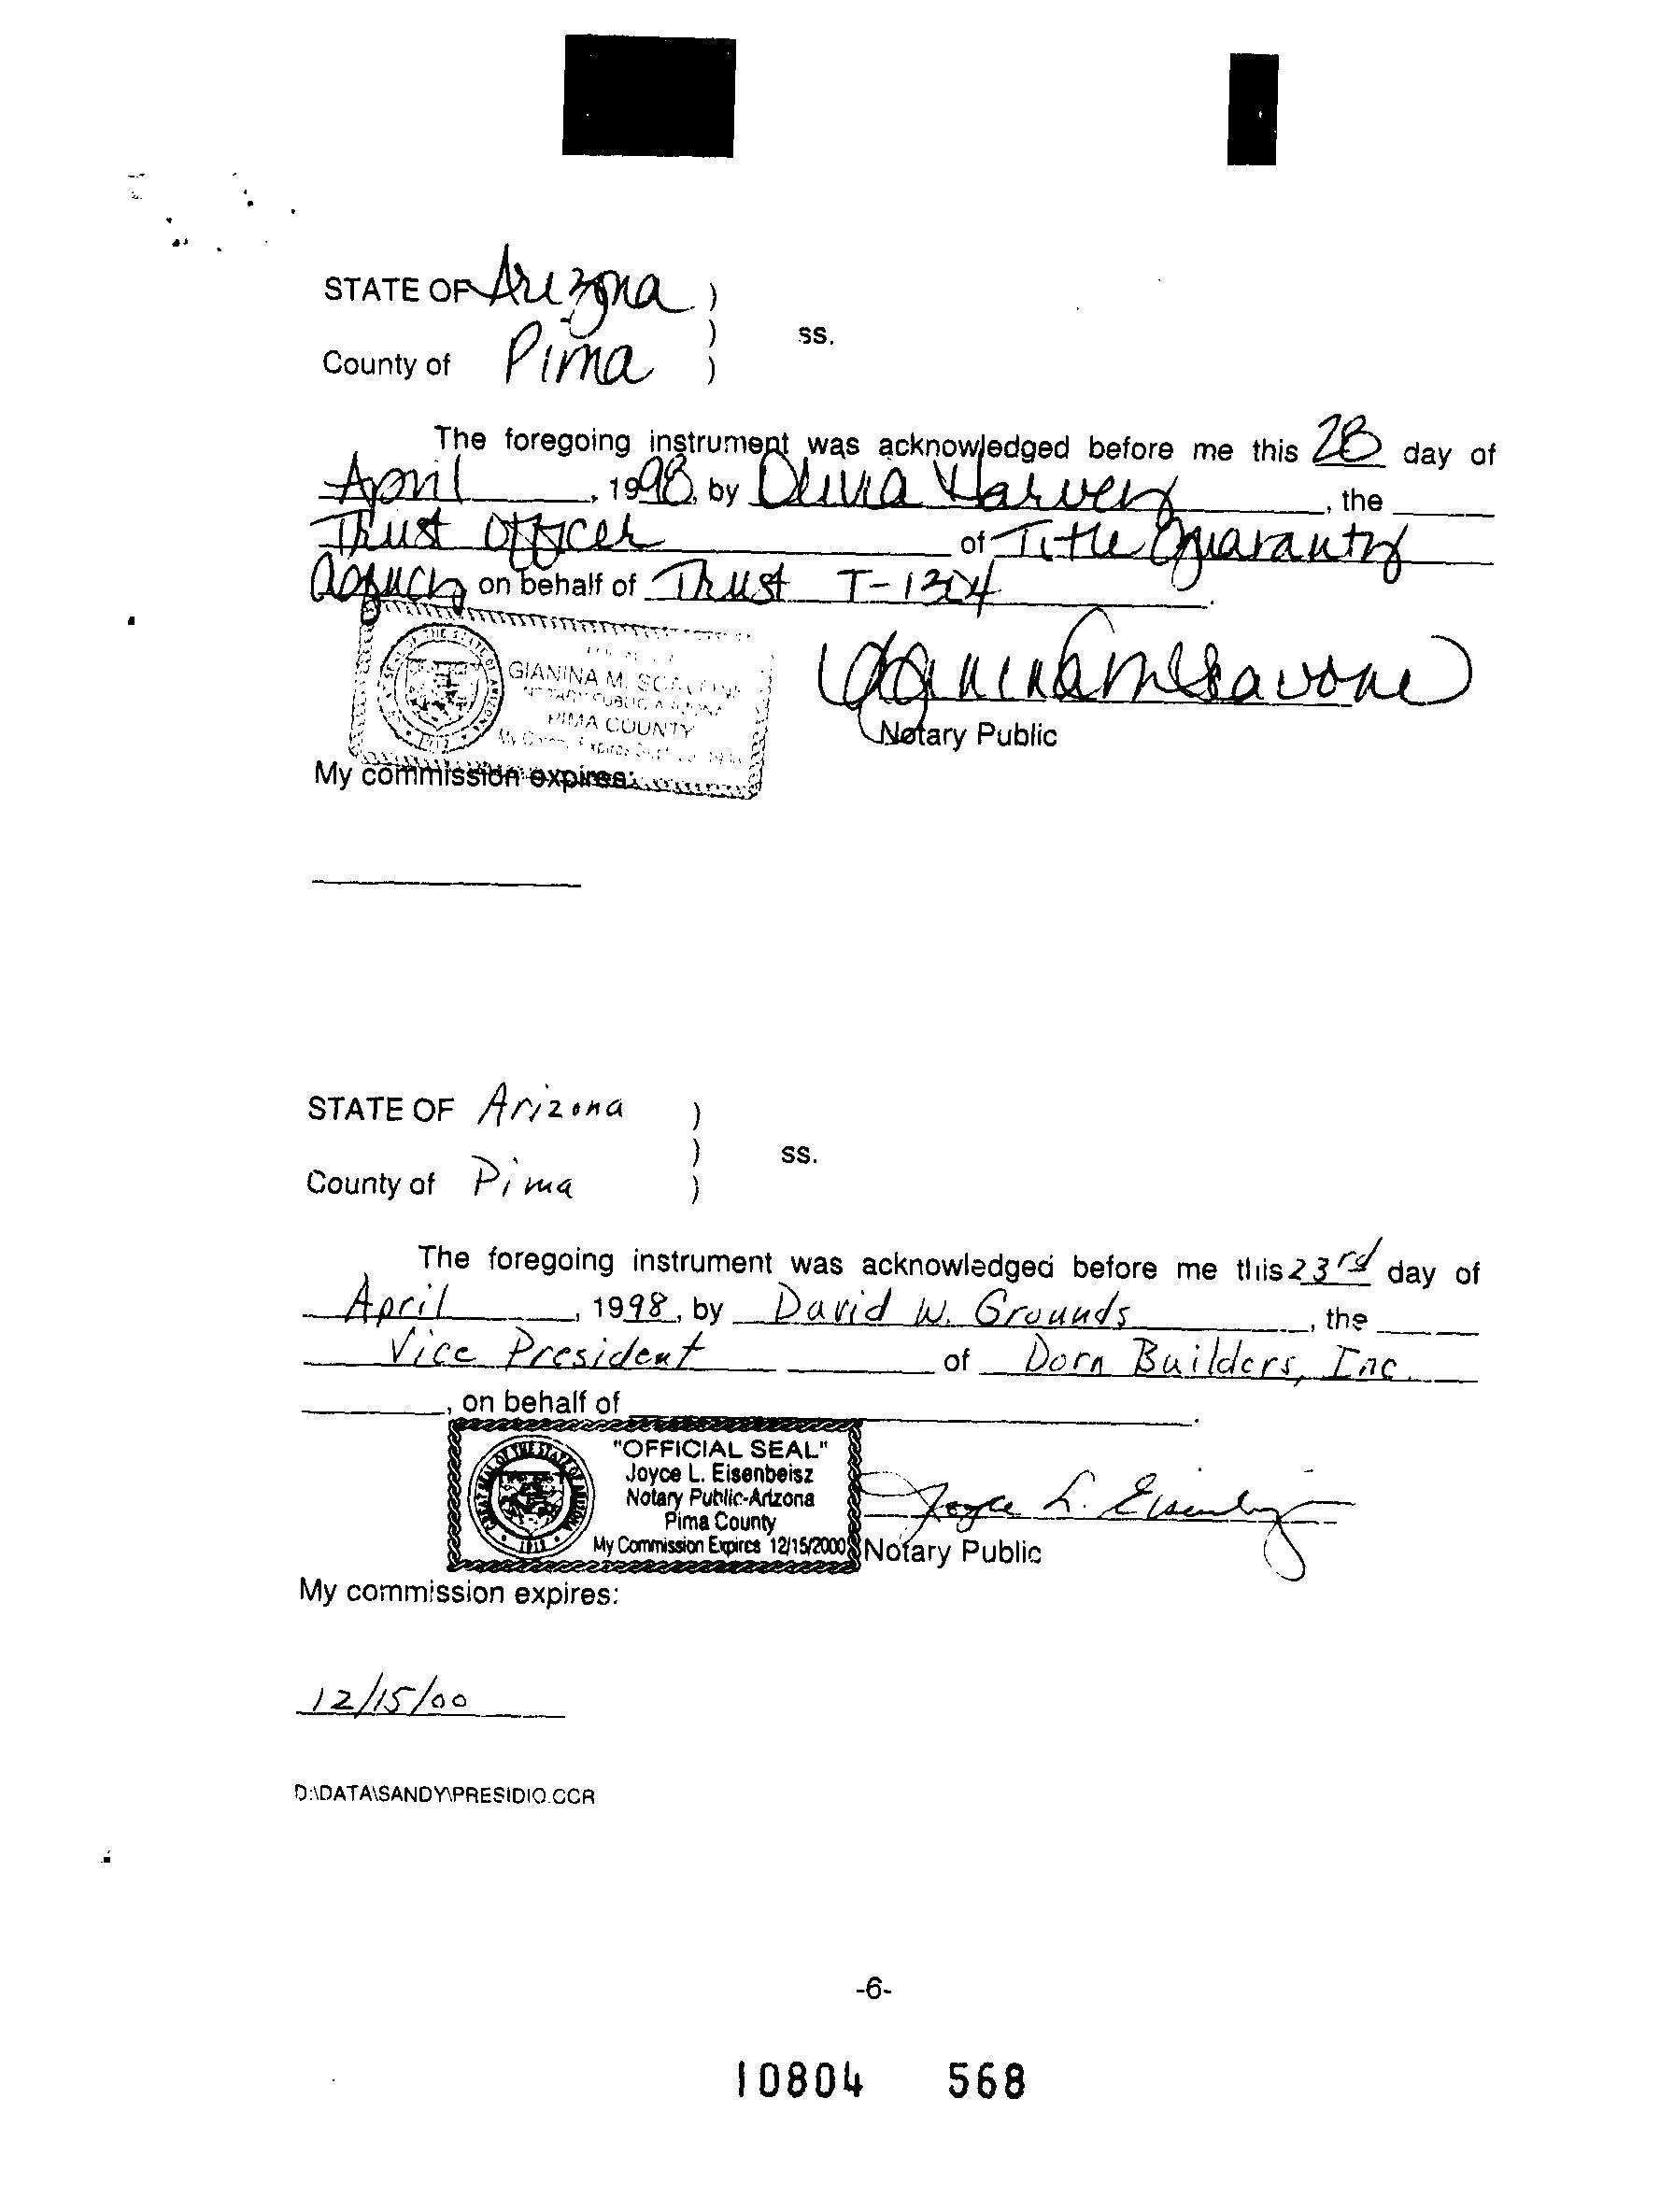 STATE OF Arizona )
) ss.
County of Pima )
The foregoing instrument was acknowledged before me this 28 day of
April, 1998, by Olivia Harvey, the
Trust Officer of Title Guaranty
Agency on behalf of Trust T-1314.
GIANINA M.
NOTARY PUBLIC ARIZONA
PIMA COUNTY
My Comm. Expires
Notary Public
My commission expires:
STATE OF Arizona )
) ss.
County of Pima )
The foregoing instrument was acknowledged before me this 23rd day of
April, 1998, by David W. Grounds, the
Vice President of Dorn Builders, Inc.
, on behalf of .
GREAT SEAL OF THE STATE OF ARIZONA
1912
"OFFICIAL SEAL"
Joyce L. Eisenbeisz
Notary Public-Arizona
Pima County
My Commission Expires 12/15/2000
Joyce L. Eisenbeisz
Notary Public
My commission expires:
12/15/00
D:\DATA\SANDY\PRESIDIO.CCR
-6-
10804 568